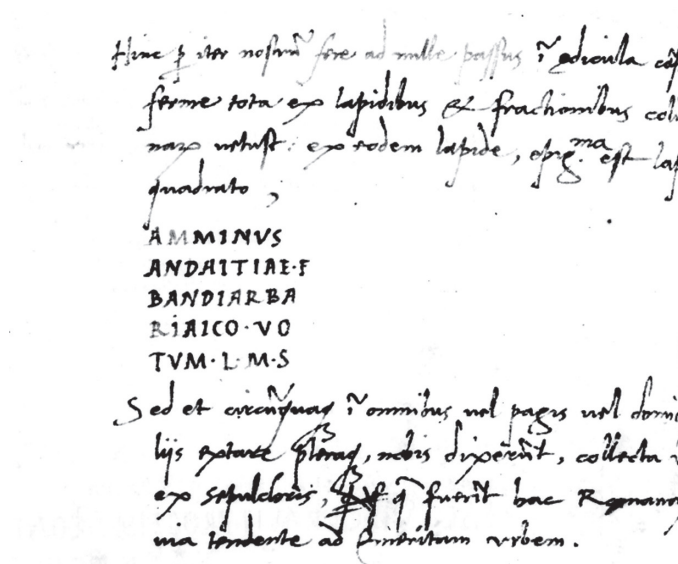 Hinc ꝑ iter nostrũ fere ad mille passus ĩ ędicula
ferme tota ex lapidibus & fractionibus
vetust ex eodem lapide, epig.ma est
quadrato ,
AMMINVS
ANDAITIAE·F
BANDIARBA
RIAICO·VO
TVM·L·M·S
Sed et circũquaq ĩ omnibus vel pagis vel
liis extare pleraq, nobis dixerũt, collecta
ex sepulcloris, fuerĩt hac
via tendente ad Emeritam urbem.